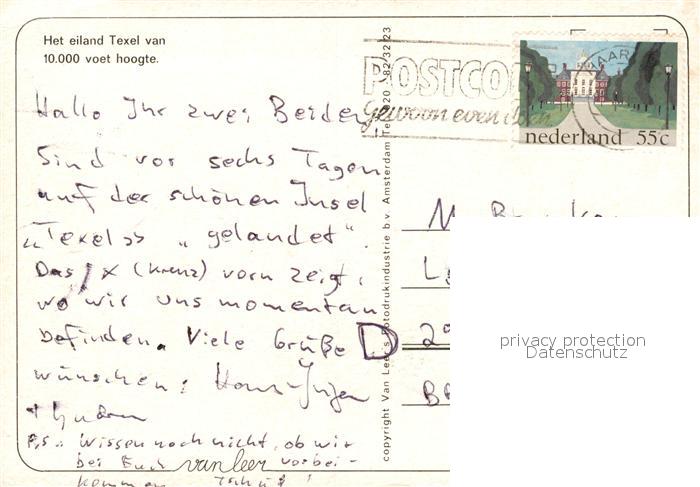 Het eiland Texel van
10.000 voet hoogte.
Hallo Ihr zwei Beiden,
Sind vor sechs Tagen
auf der schönen Insel
„Texel" „gelandet".
Das X (Kreuz) vorn zeigt,
wo wir uns momentan
befinden. Viele Grüße
wünschen: Hans-Jürgen
+
P.S.: Wissen noch nicht, ob wir
bei Euch vorbei-
kommen. Tschüß!
van leer
copyright Van Leer's Fotodrukindustrie b.v. Amsterdam Tel. 020 - 82 32 23
POSTCO
gewoon even doen
nederland 55c
D
privacy protection
Datenschutz